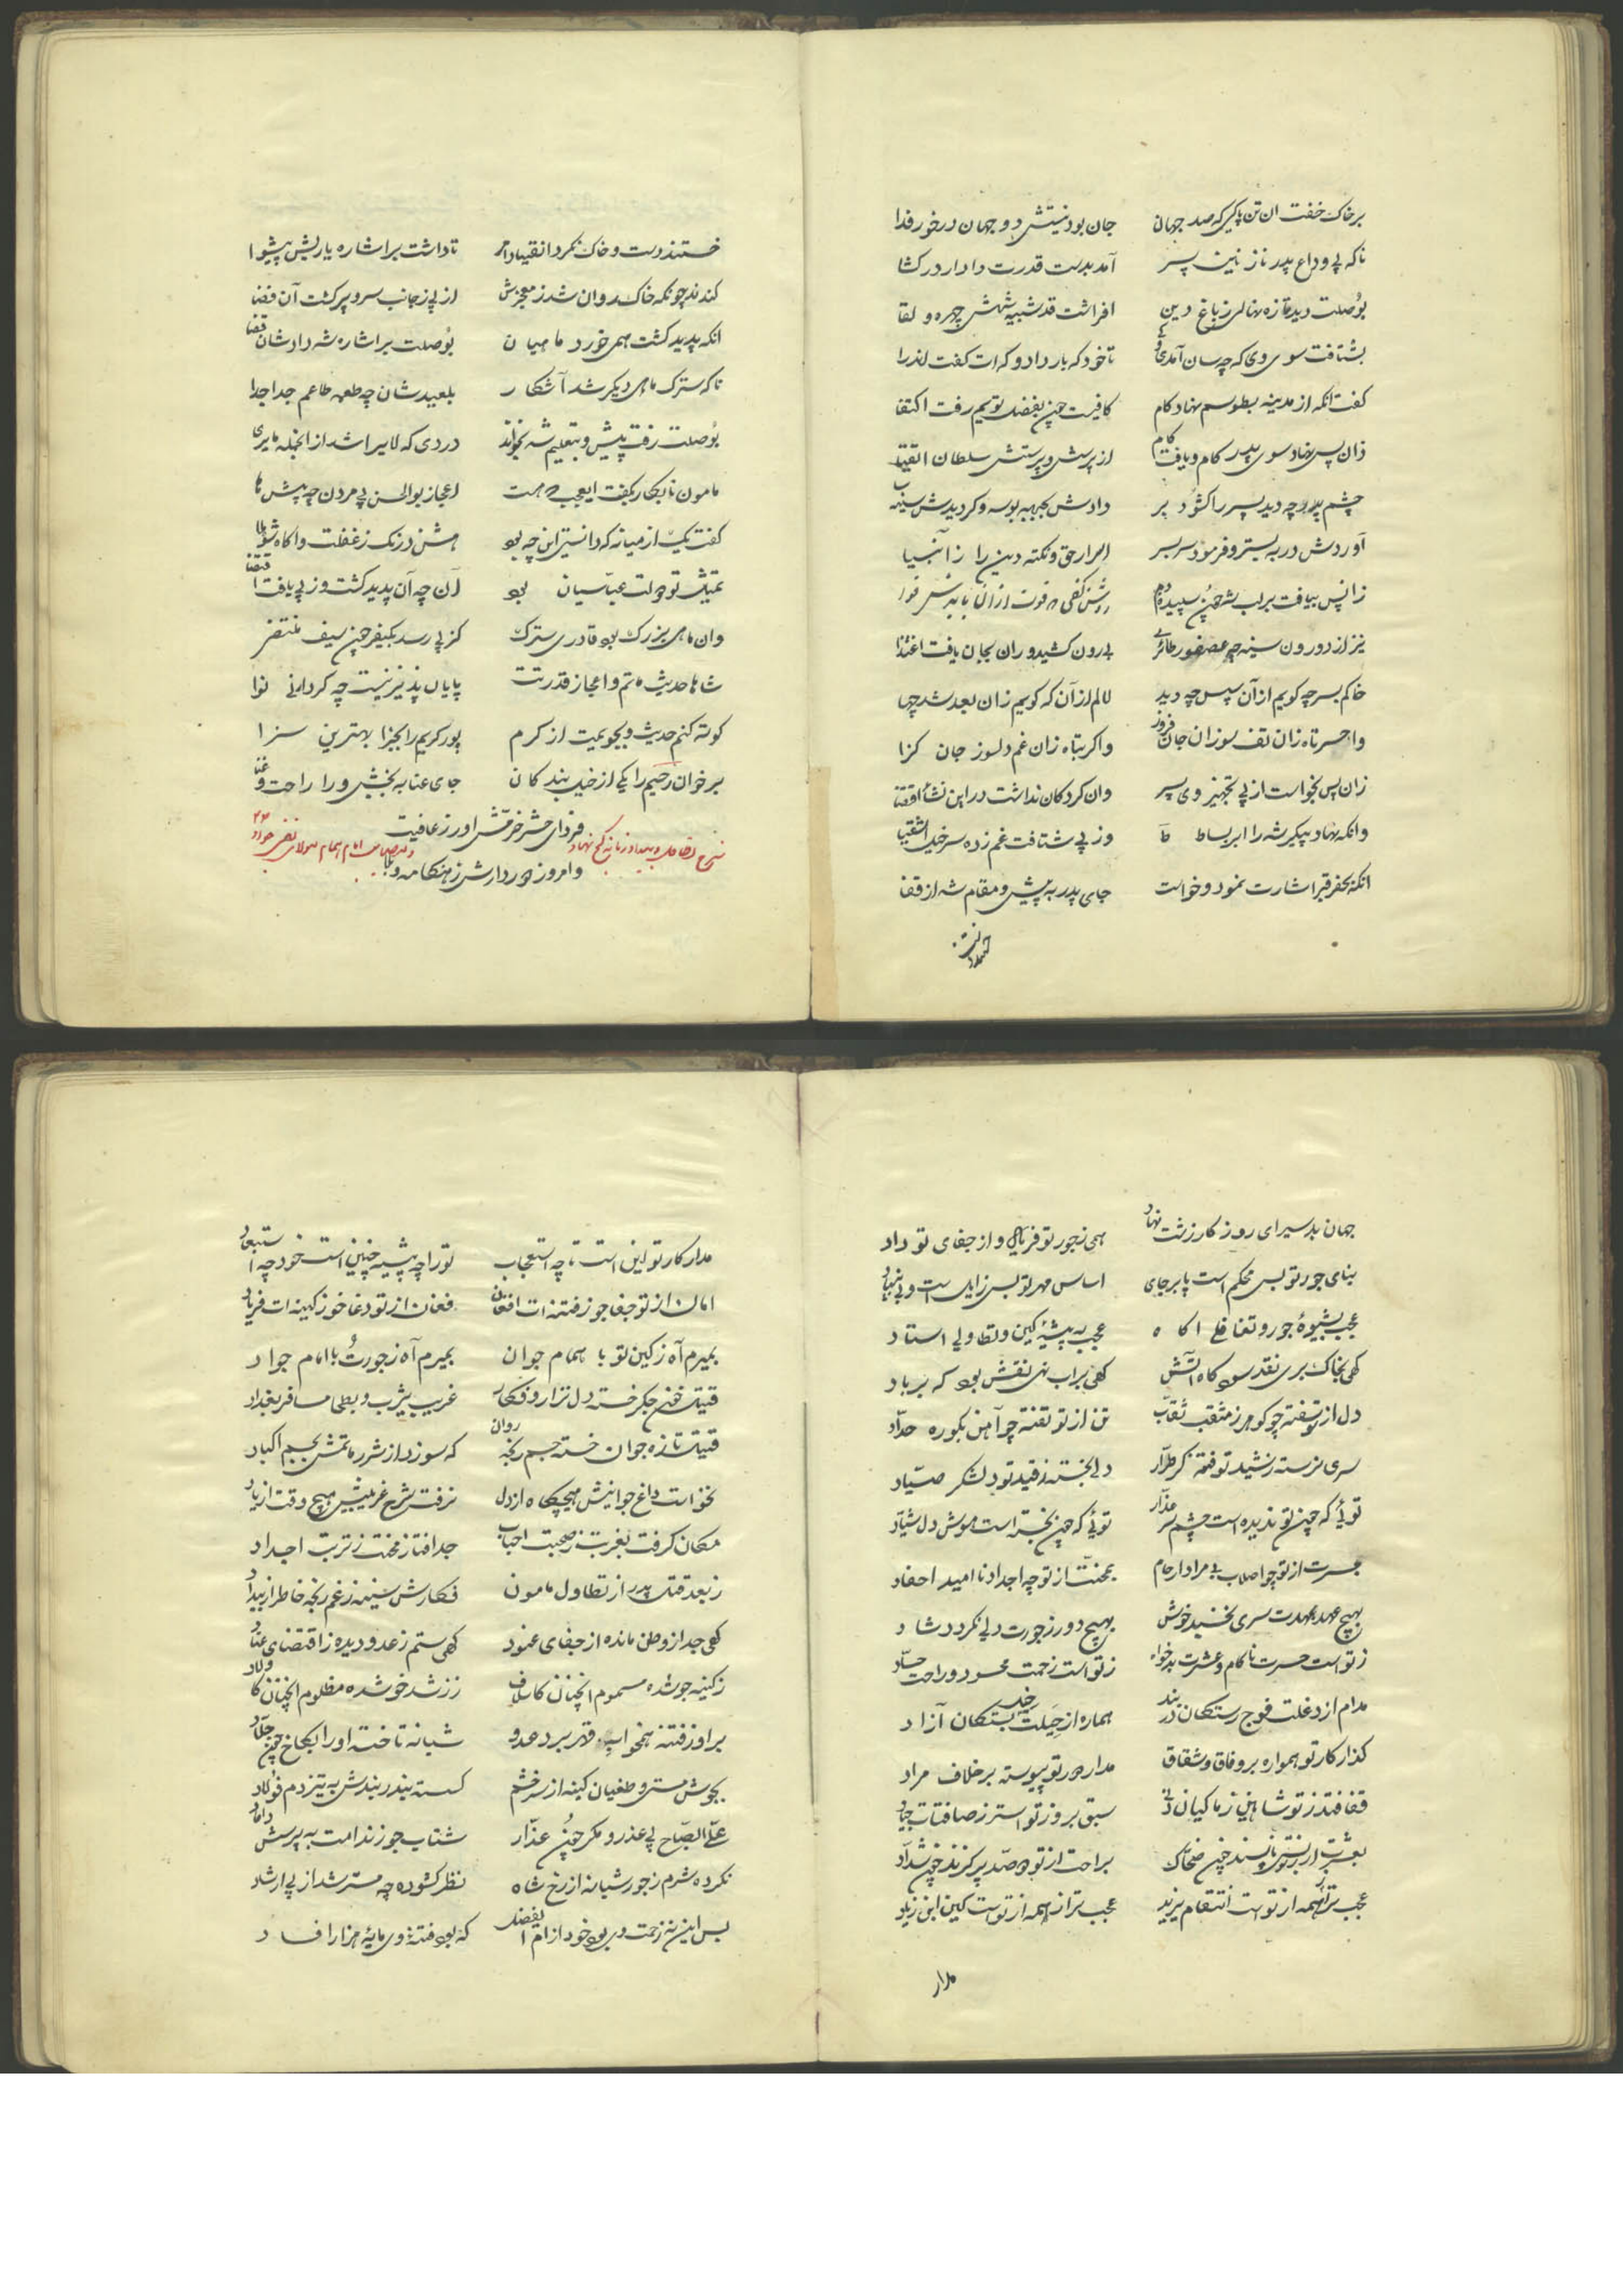 بر خاک خفت ان تن پاکی که صد جهان جان بود نیستش دو جهان در خور فدا
ناکه پی وداع پدر نازنین پسر آمد بدست قدرت دادار در کشا
بوصلت دید تازه نهالی ز باغ دین افراشت قد شبیه شهش چهره و لقا
بشتافت سوی وی که چه سان آمدی تا خود که بار داد و که ات کفت اندرا
کفت انکه از مدینه بطوسم نهاد کام کافیست چون بفضل تویم رفت اکتفا
زان پس نهاد سوی پدر کام و یافت از پرسش و پرستش سلطان اتقیا
چشم پدر چه دید پسر را کشود بر دادش بجبهه بوسه و کردیدش
آوردش در به بستر و فرمود سر بسر اسرار حق و نکته دین را ز انبیا
زانپس بیافت بر لب شه چون سپیده
نیز از درون سینه چه عصفور طائری بیرون کشید و ران بجان یافت اغتذا
خاکم بسر چه کویم از آن پس چه دید لالم از آن که کویم زان بعد شد چها
واحسرتاه زان تف سوزان جان فروز واکربتاه زان غم دلسوز جان کزا
زان پس بخواست از پی تجهیز وی پسر وان کرد کان نداشت در این نشأ اقتضا
وانکه نهاد پیکر شه را ابر بساط وز پی شتافت غم زده سر خیل اشقیا
انکه بحفر قبر اشارت نمود و خواست جای پدر به پیش و مقام شه از قفا
خستند دست و خاک نکرد انقیاد امر تا داشت بر اشاره یاریش پیشوا
کندند چونکه خاک روان شد ز معجزش از پی ز جانب سر و پر کشت آن فضا
انکه پدید کشت همی خورد ماهیان بوصلت بر اشاره شه دادشان
ناکه سترک ماهی دیکر شد آشکار بلعیدشان چه طعمه طاعم جدا جدا
بوصلت رفت پیش و بتعلیم شه بخواند وردی که
مامون نابکار بکفت ایعجب اعجاز بوالحسن پی مردن چه پیش ها
کفت یکی از میانه که دانستی این چه بود
تمثیل تو دولت عباسیان بود آن چه آن پدید کشت و ز پی یافت
وان ماهی بزرک بود قادری سترک کز پی رسد بکیفر چون سیف منتضر
شاها حدیث ماتم و اعجاز قدرتت پایان پذیر نیست چه کردانی نوا
کوته کنم حدیث و بجویمت از کرم پور کریم را بجزا بهترین سزا
بر خوان رحیم را یکی از خیل بندکان جای عنا به بخش ورا راحت و غنا
فردای حشر خرمش اور ز عافیت
وامروز دور دارش ز هنکامه وبا
جهان بد سیر ای روزکار زشت نهاد همی ز جور تو فریاد و از جفای تو داد
بنای جور تو بس محکم است پا بر جای اساس مهر تو بس زایل است و بی بنیاد
عجب بشیوه جور و تغافلی اکاه عجب به پیشه کین و تطاولی استاد
کهی بخاک بری نقد سود کاه آتش کهی بر اب نهی نقش بود که بر باد
دل از تو سفته چو کوهر ز مثقب ثقاب تن از تو تفته چو آهن بکوره حداد
سری نرسته ز شید تو فتنه کر طرار دلی نجسته ز قید تو دلشکر صیاد
توئی که چون تو ندیده است چشم سر غدار توئی که چون نجسته است هوش دل شیاد
بحسرت از تو چو اصلاب بی مراد ارحام بمحنت از تو چه اجداد نا امید احفاد
بهیچ عهد بعهدت سری نخسبد خوش بهیچ دور ز جورت دلی نکردد شاد
ز تو است حسرت ناکام و عشرت بدخواه ز تو است زحمت محسود و راحت حساد
مدام از دغلت فوج رستکان در بند هماره از حیلت خیل بستکان آزاد
کذار کار تو همواره بر وفاق و شقاق مدار دور تو پیوسته بر خلاف مراد
قفا فتد ز تو شاهین ز ماکیان سبق برد ز تو استر ز صافنات جیاد
بعشرت از تو نپسند چون ضحاک براحت از تو دو صد پر کزند چون شداد
عجب تر از همه از تو است انتقام یزید عجب تر از همه از تو است کین ابن زیاد
مدار
مدار کار تو این است تا چه استعجاب تو را چه پیشه چنین است خود چه استبعاد
امان از تو جفاجو ز فتنه ات افغان فغان از تو دغا خو ز کینه ات فریاد
بمیرم آه ز کین تو با همام جوان بمیرم آه ز جورت با امام جواد
قتیل خون جکر خسته دل نزار و فکار غریب یثرب و بطحا مسافر بغداد
قتیل تازه جوان خسته جسم رنجه روان که سوزد از شرر ماتمش بجسم اکباد
نخواست داغ جوانیش هیچکاه از دل نرفت شرح غریبیش هیچ وقت از یاد
مکان کرفت بغربت ز صحبت احباب جدا فتاد ز محنت ز تربت اجداد
ز بعد قتل پدر از تطاول مامون فکارش سینه ز غم رنجه خاطر از بیداد
کهی جدا ز وطن مانده از جفای عنود کهی ستم ز عدو دیده ز اقتضای عناد
ز کینه جو شده مسموم انچنان کاسلاف ز زشت خو شده مظلوم انچنان کاولاد
شبانه تاخته او را بکاخ چون جلاد
بجوش مستی و طغیان کینه از سر خشم کسسته بند ز بندش به تیز دم فولاد
علی الصباح پی عذر و مکر چون غدار شتاب جو ز ندامت به پرسش داماد
نکرده شرم ز جور شبانه از رخ شاه نظر کشوده چه مسترشد از پی ارشاد
بس این نه زحمت وی بود خود از ام الفضل که بود فتنه وی مایه هزار افساد